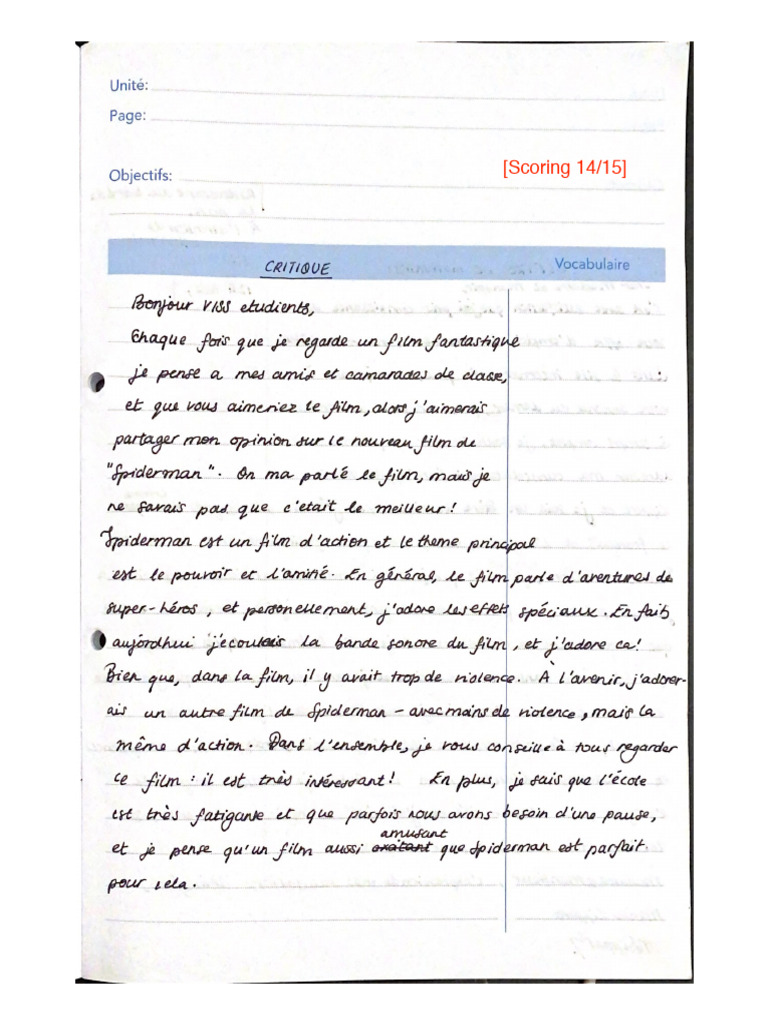 Unité:
Page:
[Scoring 14/15]
Objectifs:
CRITIQUE
Vocabulaire
Bonjour viss etudients,
Chaque fois que je regarde un film fantastique
je pense a mes amis et camarades de classe,
et que vous aimeriez le film, alors j'aimerais
partager mon opinion sur le nouveau film de
"Spiderman". On ma parlé le film, mais je
ne savais pas que c'etait le meilleur!
Spiderman est un film d'action et le theme principal
est le pouvoir et l'amitié. En général, le film parle d'aventures de
super-héros, et personellement, j'adore les effets spéciaux. En fait,
aujordhui j'ecoutais la bande sonore du film, et j'adore ca!
Bien que, dans la film, il y avait trop de violence. À l'avenir, j'adorer-
ais un autre film de Spiderman - avec mains de violence, mais la
même d'action. Dans l'ensemble, je vous conseille à tous regarder
ce film: il est très intéressant! En plus, je sais que l'école
est très fatigante et que parfois nous avons besoin d'une pause,
amusant
et je pense qu'un film aussi que Spiderman est parfait.
pour cela.